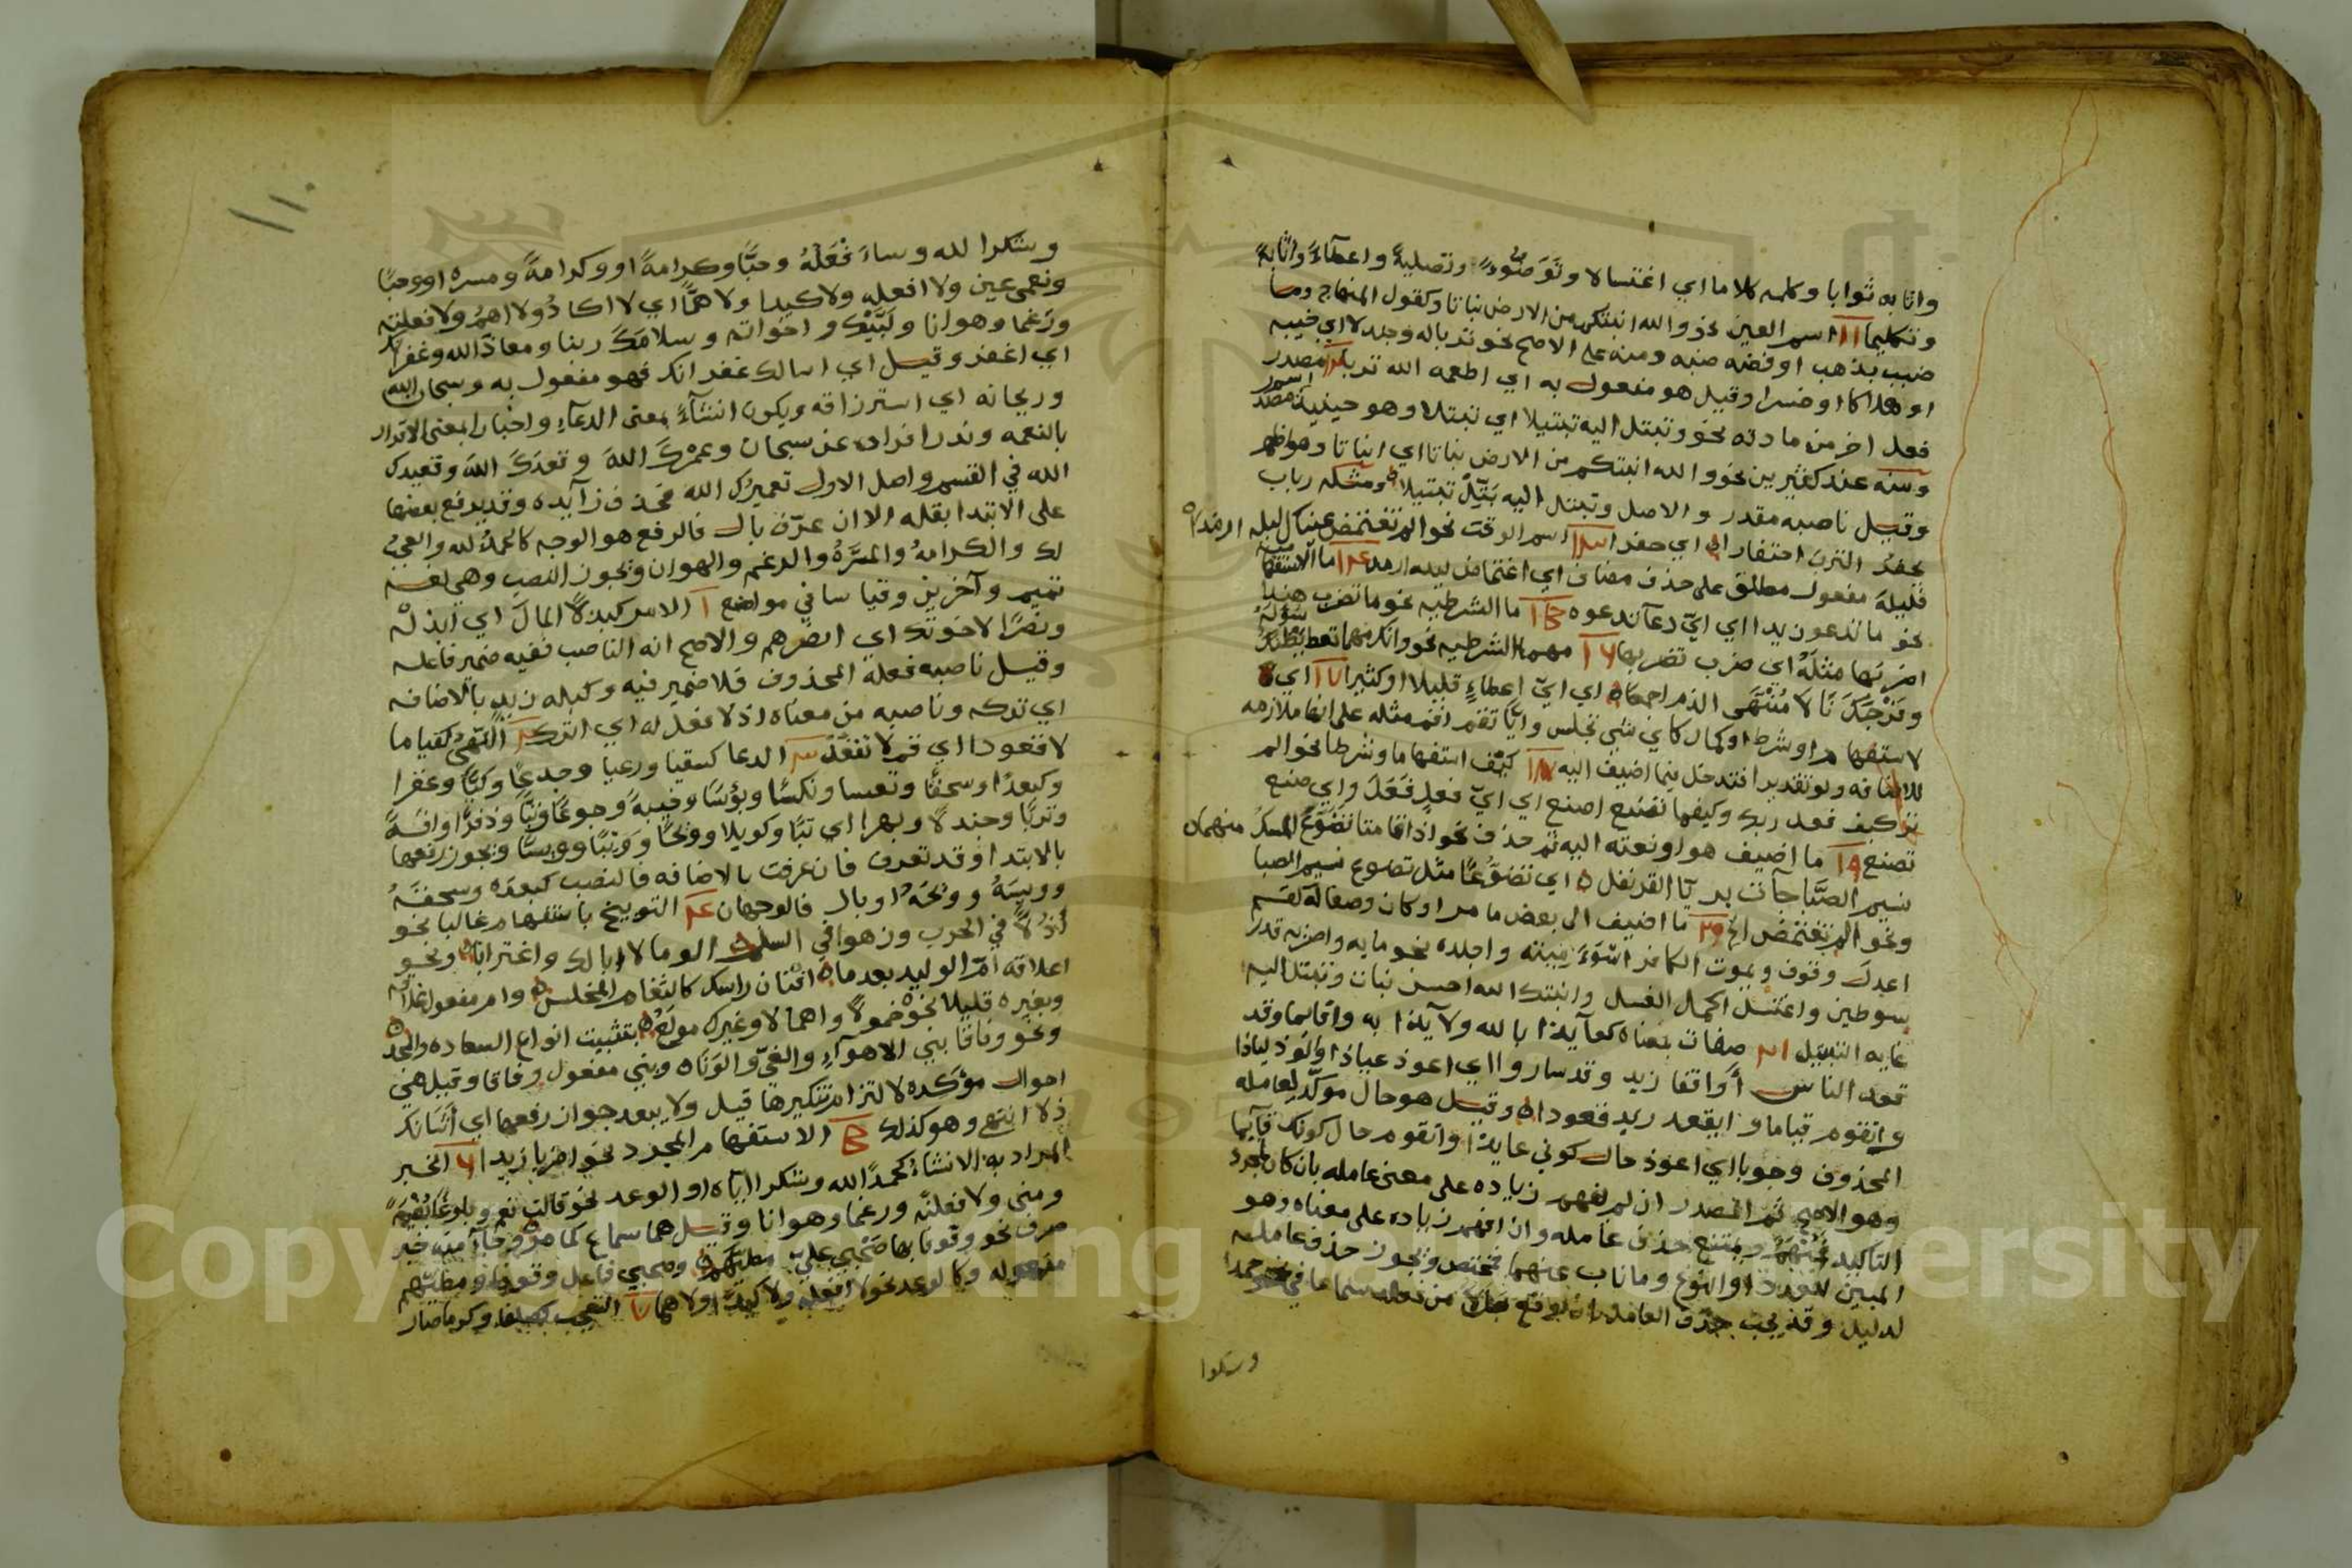 واثابه ثوابا وكلمه كلاما اي اغتسالا وتوضؤا وتصلية واعطاء واثابة
وتكليما اسم العين نحو والله انبتكم من الارض نباتا وكقول المنهاج وما
ضبب بذهب او فضه ضبه ومنه على الاصح نحو تربا له وجندلا اي خيبه
او هلاكا او خسرا وقيل هو مفعول به اي اطعمه الله تربا مصدر
فعل اخر من مادته نحو وتبتل اليه تبتيلا اي تبتلا وهو حينئذ اسم مصدر
وسنه عند كثيرين نحو والله انبتكم من الارض نباتا اي انباتا وهو اظهر
وقيل ناصبه مقدر والاصل وتبتل اليه بتل تبتيلا ومثله رباب
يحفز الترب احتفارا اي حفرا اسم الوقت نحو الم تغتمض عيناك ليله ارمدا
فليلة مفعول مطلق على حذف مضاف اي اغتماض ليله ارمد ما الاستفهامية
نحو ما تدعو زيدا اي اي دعآ تدعوه ما الشرطيه نحو ما تضرب هندا
اضربها مثله اي ضرب تضربها مهما الشرطيه نحو وانك مهما تعط بطنك سؤله
وفرجك نالا منتهى الذم اجمعا اي اي اعطاء قليلا او كثيرا اي
لاستفهام او شرط او كمال كاي شي تجلس وايا تقم اقم مثله على انها ملازمه
للاضافه ولو تقديرا فتدخل فيما اضيف اليه كيف استفهاما وشرطا نحو الم
تر كيف فعل ربك وكيفما تصنع اصنع اي اي فعل فعل واي صنع
تصنع ما اضيف هو او نعته اليه ثم حذف نحو اذا قامتا تضوع المسك منهما
نسيم الصبا جآت بريا القرنفل اي تضوعا مثل تضوع نسيم الصبا
ونحو الم تغتمض الخ ما اضيف الى بعض ما مر او كان وصفا له لقسم
اعدل وقوف ويموت الكافر اسوء ميتة واجلده نحو مايه واضربه قدر
سوطين واغتسل اكمل الغسل وانبتك الله احسن نبات وتبتل اليه
غايه التبتيل صفات بمعناه كعآيذا بالله ولآيذا به واقايما وقد
قعد الناس أواقفا زيد وقد ساروا اي اعوذ عياذا والوذ لياذا
واتقوم قياما وايقعد زيد قعودا وقيل هو حال موكد لعامله
المحذوف وجوبا اي اعوذ حال كوني عايذا واتقوم حال كونك قآيما
وهو الاصح ثم المصدر ان لم يفهم زياده على معنى عامله بان كان لمجرد
التاكيد فمبهم ويمتنع حذف عامله وان افهم زياده على معناه وهو
المبين للعدد او النوع وما ناب عنهما فمختص ويجوز حذف عامله
لدليل وقد يجب حذف العامل بان يوقع بدلا من فعله سماعا في نحو حمدا
وشكرا
وشكرا لله وساء فعله وحبا وكرامة او وكرامة ومسره او وحبا
ونعمى عين ولا افعله ولا كيدا ولا هما اي لا اكاد ولا اهم ولا فعلته
ورغما وهوانا ولبيك واخواته وسلامك ربنا ومعاذ الله وغفرانك
اي اغفر وقيل اي اسالك غفرانك فهو مفعول به وسبحان الله
وريحانه اي استرزاقه ويكون انشآء بمعنى الدعآء واخبارا بمعنى الاقرار
بالنعمه وندر افراده عن سبحان وعمرك الله وقعدك الله وقعيدك
الله في القسم واصل الاول تعميرك الله فحذف زآيده وقد يرفع بعضها
على الابتدا بقله الا ان عرف بال فالرفع هو الوجه كالحمد لله والعجب
لك والكرامة والمسرة والرغم والهوان ويجوز النصب وهي لغه
تميم وآخرين وقياسا في مواضع ١ الامر كبذلا المال اي ابذله
ونصرا لاخوتك اي انصرهم والاصح انه الناصب ففيه ضمير فاعله
وقيل ناصبه فعله المحذوف فلا ضمير فيه وكبله زيد بالاضافه
اي تركه وناصبه من معناه اذ لا فعل له اي اترك ٢ النهي كقياما
لا قعودا اي قم لا تقعد ٣ الدعا كسقيا ورعيا وجدعا وكيا وعقرا
وكبعدا وسحقا وتعسا ونكسا وبؤسا وخيبة وجوعا وتبا وذفرا وافة
وتربا وجندلا وبهرا اي تبا وكويلا وويحا وويبا وويسا ويجوز رفعها
بالابتدا وقد تعرف فان عرفت بالاضافه فالنصب كبعده وسحقه
وويسه وويحه او بال فالوجهان ٤ التوبيخ باستفهام غالبا نحو
اذلا في الحرب وزهوا في السلم الوما لا ابا لك واغترابا ونحو
اعلاقه ام الوليد بعدما افنان راسك كالثغام المخلس وام مفعول علاقه
وبغيره قليلا نحو خمولا واهمالا وغيرك مولع بتثبيت انواع السعاده والمجد
ونحو وفاقا بني الاهوآء والغي والونا وبني مفعول وفاقا وقيل هي
احوال مؤكده لالتزام تنكيرها قيل ولا يبعد جواز رفعها اي اشانك
ذلا انتهى وهو كذلك ٥ الاستفهام المجرد نحو اضربا زيدا ٦ الخبر
المراد به الانشاء كحمدا لله وشكرا اياه او الوعد نحو قالت نعم وبلوغا بغية
ومنى ولا فعلته ورغما وهوانا وقيل هما سماع كما مر وجآ منه خبر
صرف نحو وقوفا بها صحبي علي مطيهم وصحبي فاعل وقوفا ومطيهم
مفعوله وكالوعد نحو لا افعله ولا كيدا ولا هما ٧ التعجب ككرما وكرما صار
١١٠